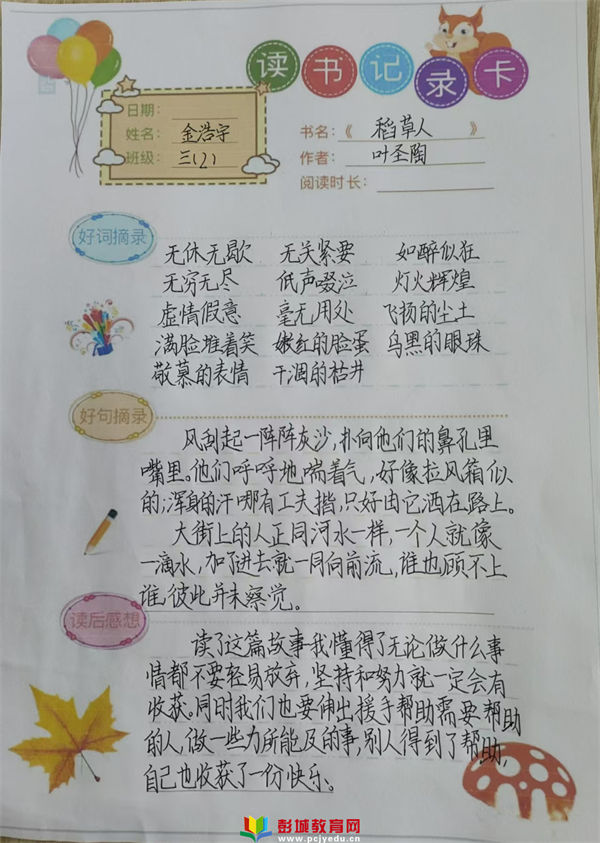 读书记录卡
日期：
姓名： 金浩宇
班级： 三（2）
书名：《 稻草人 》
作者： 叶圣陶
阅读时长：
好词摘录
无休无歇 无关紧要 如醉似狂
无穷无尽 低声啜泣 灯火辉煌
虚情假意 毫无用处 飞扬的尘土
满脸堆着笑 嫩红的脸蛋 乌黑的眼珠
敬慕的表情 干涸的枯井
好句摘录
风刮起一阵阵灰沙，扑向他们的鼻孔里
嘴里。他们呼呼地喘着气，好像拉风箱似
的；浑身的汗哪有工夫揩，只好由它洒在路上。
大街上的人正同河水一样，一个人就像
一滴水，加了进去就一同向前流，谁也顾不上
谁，彼此并未察觉。
读后感想
读了这篇故事我懂得了无论做什么事
情都不要轻易放弃，坚持和努力就一定会有
收获。同时我们也要伸出援手帮助需要帮助
的人，做一些力所能及的事，别人得到了帮助，
自己也收获了一份快乐。
彭城教育网
www.pcjyedu.cn